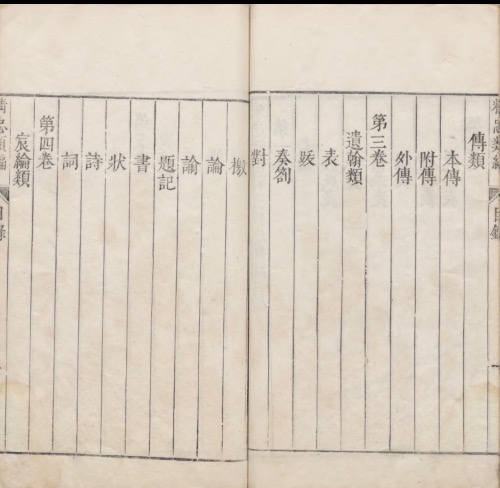 精忠類編
目錄
傳類
本傳
附傳
外傳
第三卷
遺翰類
表
䟦
奏劄
對
檄
論
諭
題記
書
狀
詩
詞
第四卷
宸綸類
精忠類編
目錄